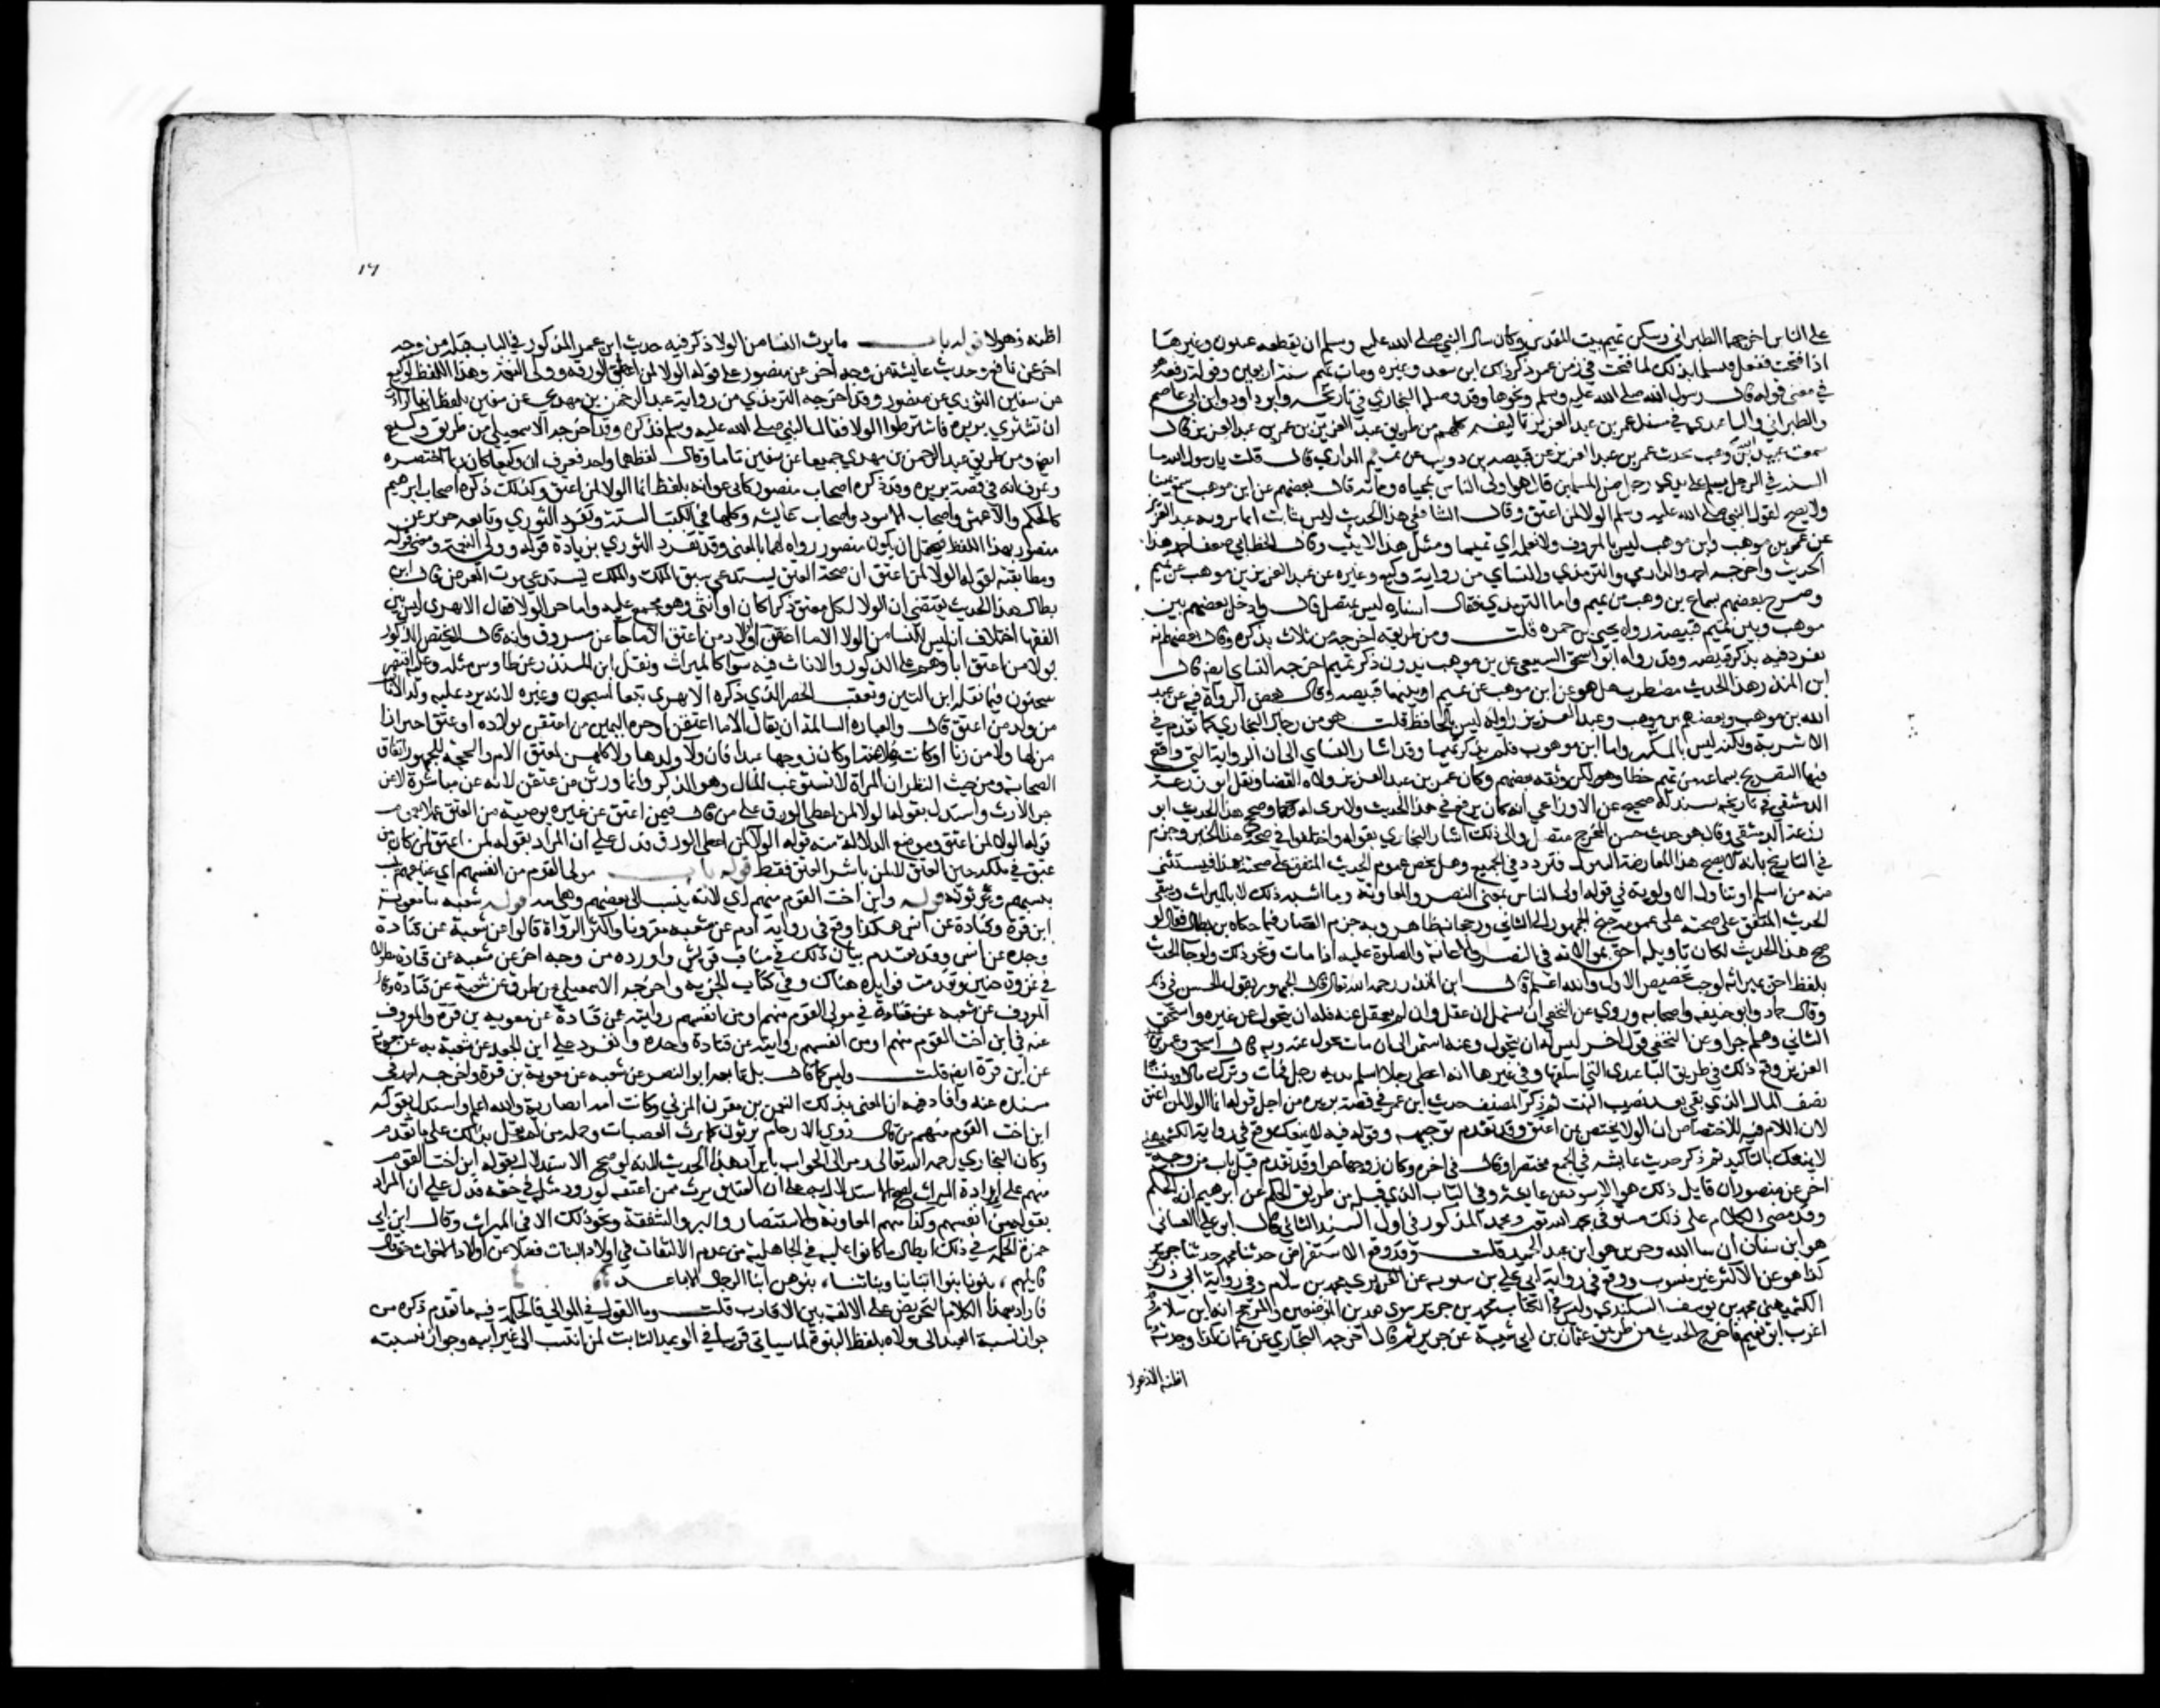 على الناس اخرجهما الطبراني وسكن تميم بيت المقدس وكان سال النبي صلى الله عليه وسلم ان يقطعه عيون وغيرها
اذا فتحت ففعل فتسلمها بذلك لما فتحت في زمن عمر ذكر ذلك ابن سعد وغيره ومات تميم سنة اربعين وقوله رفعه هو
في معنى قوله قال رسول الله صلى الله عليه وسلم ونحوها وقد وصله البخاري في تاريخه وابو داود وابن ابي عاصم
والطبراني والباغندي في مسند عمر بن عبد العزيز تاليفه كلهم من طريق عبد العزيز بن عمر بن عبد العزيز قال
سمعت عبد الله بن موهب يحدث عمر بن عبد العزيز عن قبيصه بن ذويب عن تميم الداري قال قلت يا رسول الله ما
السنه في الرجل يسلم على يدي رجل من المسلمين قال هو اولى الناس بمحياه ومماته قال بعضهم عن ابن موهب سمع تميما
ولا يصح لقول النبي صلى الله عليه وسلم الولا لمن اعتق وقال الشافعي هذا الحديث ليس بثابت انما يرويه عبد العزيز
عن عمر بن موهب وابن موهب ليس بالمعروف ولا نعلمه لقي تميما ومثل هذا لا يثبت وقال الخطابي ضعف احمد هذا
الحديث واخرجه احمد والدارمي والترمذي والنساي من رواية وكيع وغيره عن عبد العزيز عن بن موهب عن تميم
وصرح بعضهم بسماع بن وهب من تميم واما الترمذي فقال اسناده ليس بمتصل قال وادخل بعضهم بين
موهب وبين تميم قبيصة رواه يحيى بن حمزه قلت ومن طريقه اخرجه من ثلاث بذكره وقال بعضهم انه
تفرد فيه بذكر قبيصه وقد رواه ابو اسحق السبيعي عن بن موهب بدون ذكر تميم اخرجه النساي ايضا قال
ابن المنذر هذا الحديث مضطرب هل هو عن ابن موهب عن تميم او بينهما قبيصه وقال بعض الرواة فيه عن عبد
الله بن موهب وبعضهم بن موهب وعبد العزيز راويه ليس بالحافظ قلت هو من رجال البخاري كما تقدم في
الاشربة ولكنه ليس بالمكثر واما ابن موهب فلم يدرك تميما وقد اشار النساي الى ان الرواية التي وقع
فيها التصريح بسماعه من تميم خطا وهو لكن وثقه بعضهم وكان عمر بن عبد العزيز ولاه القضا ونقل ابو زرعة
الدمشقي في تاريخه بسند له صحيح عن الاوزاعي انه كان يرفع في هذا الحديث ولا يرى له وجها وصحح هذا الحديث ابو
زرعة الدمشقي وقال هو حديث حسن المخرج متصل والى ذلك اشار البخاري بقوله واختلفوا في صحة هذا الخبر وجزم
في التاريخ بانه لا يصح هذا لمعارضة الولا فتردد في الجمع وهل يخص عموم الحديث المتفق على صحته بهذا فيستثنى
منه من اسلم او تناول الاولوية في قوله اولى الناس بمعنى النصر والمعاونة وما اشبه ذلك لا بالميراث ويبقى
الحديث المتفق على صحته على عمومه جنح الجمهور الى الثاني ورجحانه ظاهر وبه جزم القصار فيما حكاه بن بطال فقال لو
صح هذا الحديث لكان تاويله احق بموالاته في النصر والاعانة والصلوة عليه اذا مات ونحو ذلك ولو جا الحديث
بلفظ احق بميراثه لوجب تخصيص الاول والله اعلم قال ابن المنذر رحمه الله تعالى قال الجمهور بقول الحسن في ذلك
وقال حماد وابو حنيفه واصحابه وروي عن النخعي انه يستمر ان عقل وان لم يعقل عنه فله ان يتحول عن غيره واستحق
الثاني وهلم جرا وعن النخعي قول اخر ليس له ان يتحول وعنه استمر الى ان مات تحول عنه وبه قال اسحق وعمر بن عبد
العزيز وقع ذلك في طريق الباغندي التي اسلفتها وفي غيرها انه اعطى رجلا اسلم على يديه رجل فمات وترك مالا وبنتا
نصف المال الذي بقي بعد نصيب البنت ثم ذكر المصنف حديث ابن عمر في قصة بريره من اجل قوله انما الولا لمن اعتق
لان اللام فيه للاختصاص ان الولا يختص بمن اعتق وقد تقدم توجيهه وقوله فيه لا يمنعك وقع في رواية الكشميهني
لا يمنعنك بالتاكيد ثم ذكر حديث عايشه في الجمع مختصرا وقال في اخره وكان زوجها حرا وقد تقدم قبل باب من وجه
اخر عن منصور ان قايل ذلك هو الاسود عن عايشة وفي الباب الذي قبله من طريق الحكم عن ابرهيم ان الحكم
وقد مضى الكلام على ذلك مستوفى بحمد الله تعالى ومحمد المذكور في اول السند الثاني قال ابو علي الغساني
هو ابن سنان ان شا الله وجرير هو ابن عبد الحميد قلت وقد وقع الاستقراض حدثنا محمد حدثنا جرير
كذا هو عن الاكثر غير منسوب ووقع في رواية ابي علي بن شبويه عن الفربري محمد بن سلام وفي رواية ابي ذر عن
الكشميهني محمد بن يوسف البيكندي وليس في الكتاب محمد عن جرير سوى هذين الموضعين والمرجح انه ابن سلام وقد
اغرب ابو نعيم فاخرج الحديث من طريق عثمان بن ابي شيبة عن جرير ثم قال اخرجه البخاري عن عثمان كذا وجدته وما
اظنه الا ذهولا
١٦
اظنه ذهولا قوله باب ما يرث النسا من الولا ذكر فيه حديث ابن عمر المذكور في الباب قبله من وجه
اخر عن نافع وحديث عايشة من وجه اخر عن منصور على قوله الولا لمن اعطى الورق وولي النعمة وهذا اللفظ لوكيع
عن سفين الثوري عن منصور وقد اخرجه الترمذي من رواية عبد الرحمن بن مهدي عن سفين بلفظ انها ارادت
ان تشتري بريره فاشترطوا الولا فقال النبي صلى الله عليه وسلم فذكره وقد اخرجه الاسمعيلي من طريق وكيع
ايضا ومن طريق عبد الرحمن بن مهدي جميعا عن سفين تاما وقال لفظهما واحد فعرف ان وكيعا كان ربما اختصره
وعرف انه في قصة بريره وقد ذكره اصحاب منصور كابي عوانه بلفظ انما الولا لمن اعتق وكذلك ذكره اصحاب ابرهيم
كالحكم والاعمش واصحاب الاسود واصحاب عايشه وكلها في الكتب الستة وتفرد الثوري وتابعه جرير عن
منصور بهذا اللفظ فيحتمل ان يكون منصور رواه لهما بالمعنى وقد تفرد الثوري بزيادة قوله وولي النعمة ومعنى قوله
ومطابقته لقوله الولا لمن اعتق ان صحة العتق يستدعي سبق الملك والملك يستدعي ثبوت العوض قال ابن
بطال هذا الحديث يقتضي ان الولا لكل معتق ذكرا كان او انثى وهو مجمع عليه واما جر الولا فقال الابهري ليس بين
الفقها اختلاف انه ليس للنسا من الولا الا ما اعتقن او ولاد من اعتق الا ما جا عن مسروق وانه قال لا يختص الذكور
بولا من اعتق اباوهم بل الذكور والاناث فيه سوا كالميراث ونقل ابن المنذر عن طاوس مثله وعليه اقتصر
سحنون فيما نقله ابن التين وتعقب الحصر الذي ذكره الابهري تبعا لسحنون وغيره لانه يرد عليه ولد الاناث
من ولد من اعتق قال والعباره السالمة ان يقال الا ما اعتقن او جره اليهن من اعتقن بولاده او عتق احترازا
من لها ولد من زنا او كانت ملاعنة او كان زوجها عبدا فان ولا ولدها ولا كلهن لمعتق الام والحجة للجمهور اتفاق
الصحابه ومن حيث النظر ان المراة لا تستوعب المال وهو الذكر وانما ورثت من عتق لانه عن مباشرة لا عن
جر الارث واستدل بقوله الولا لمن اعطى الورق على من قال فيمن اعتق عن غيره بوصية من المعتق عملا بعموم
قوله الولا لمن اعتق وموضع الدلاله منه قوله الولا لمن اعطى الورق فدل على ان المراد بقوله لمن اعتق لمن كان من
عتق في ملكه حين العتق لا لمن باشر العتق فقط قوله باب مولى القوم من انفسهم اي عتاقهم ينسب
بنسبهم ويرثونه قوله وابن اخت القوم منهم اي لانه ينتسب الى بعضهم وهي امه قوله شعبه نا معوية
ابن قرة وقتادة عن انس هكذا وقع في رواية ادم عن شعبه مقرونا واكثر الرواة قالوا عن شعبة عن قتادة
وحده عن انس وقد تقدم بيان ذلك في مناقب قريش واورده من وجه اخر عن شعبه عن قتادة مطولا
في غزوة حنين وتقدمت فوايده هناك وفي كتاب الجزيه واخرجه الاسمعيلي من طرق عن شعبة عن قتادة وقال
المعروف عن شعبه عن قتادة في مولى القوم منهم او من انفسهم روايته عن قتادة عن معويه بن قرة والمعروف
عنه في ابن اخت القوم منهم او من انفسهم روايته عن قتادة وحده وانفرد علي ابن الجعد عن شعبة به عن معوية
عن ابن قرة ايضا قلت وليس كما قال بل تابعه ابو النصر عن شعبه عن معوية بن قرة واخرجه احمد في
مسنده عنه وافاد فيه ان المعني بذلك النعمن بن مقرن المزني وكانت امه انصارية والله اعلم واستدل بقوله
ابن اخت القوم منهم من قال ذوي الارحام يرثون كما يرث العصبات وحمله من لم يقل بذلك على ما تقدم
وكان البخاري رحمه الله تعالى رمز الى الجواب بايراد هذا الحديث لانه لو صح الاستدلال بقوله ابن اخت القوم
منهم على ارادة الميراث لصح الاستدلال به على ان العتيق يرث ممن اعتقه لورود مثله في حقه فدل على ان المراد
بقوله من انفسهم وكذا منهم المعاونة والانتصار والبر والشفقة ونحو ذلك لا في الميراث وقال ابن ابي
جمرة الحكمة في ذلك ابطال ما كانوا عليه في الجاهلية من عدم الالتفات في اولاد البنات فضلا عن اولاد الاخوات حتى قال
قايلهم ، بنونا بنوا ابناينا وبناتنا ، بنوهن ابنا الرجال الاباعد
فاراد بهذا الكلام التحريض على الالفة بين الاقارب قلت وما القول في الموالي فالحكمة فيه ما تقدم ذكره من
جواز نسبة العبد الى مولاه بلفظ البنوة لما سياتي قريبا في الوعيد الثابت لمن انتسب الى غير ابيه وجواز نسبته